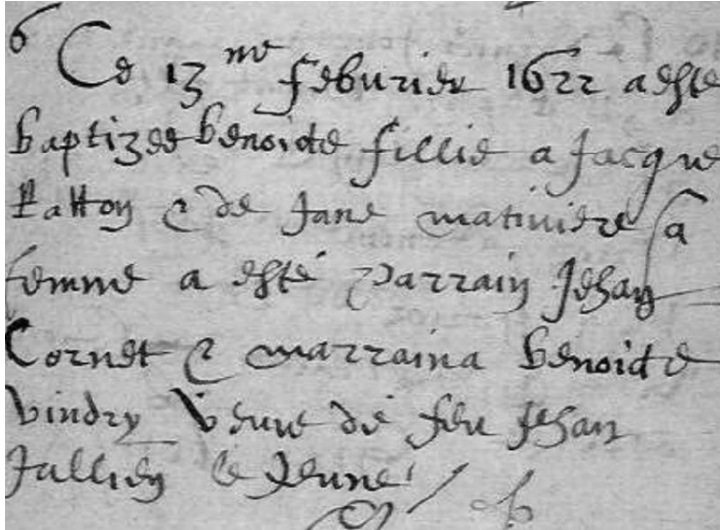 Ce 13me feburier 1622 a esté
baptizee benoiste fillie a Jacque
Patton & de Jane matiniere sa
femme a esté parrain Jehan
Cornet & marraina benoiste
vindry veuve de feu Jehan
Jallien le Jeune